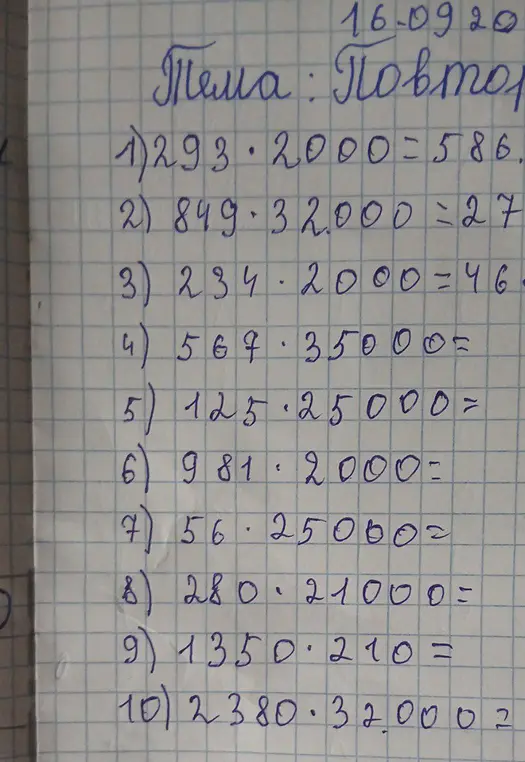 16.09 20
Тема: Повтор
1) 293 · 2000 = 586.
2) 849 · 32.000 = 27
3) 234 · 2000 = 46
4) 567 · 35000 =
5) 125 · 25000 =
6) 981 · 2000 =
7) 56 · 25000 =
8) 280 · 21000 =
9) 1350 · 210 =
10) 2380 · 32.000 =